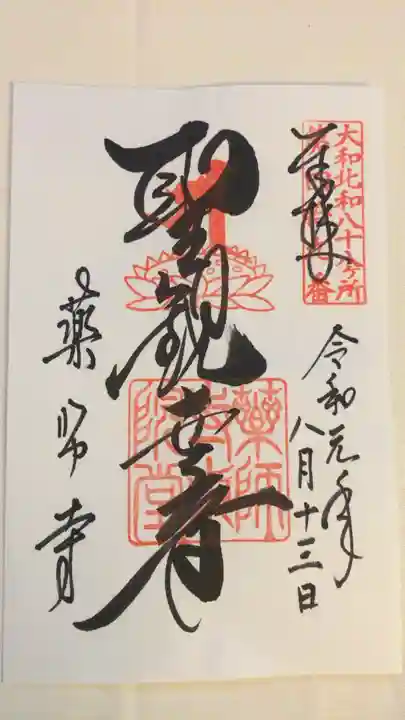 奉拝
大和北和八十八ヶ所
令和元年
八月十三日
聖観世音
薬師寺